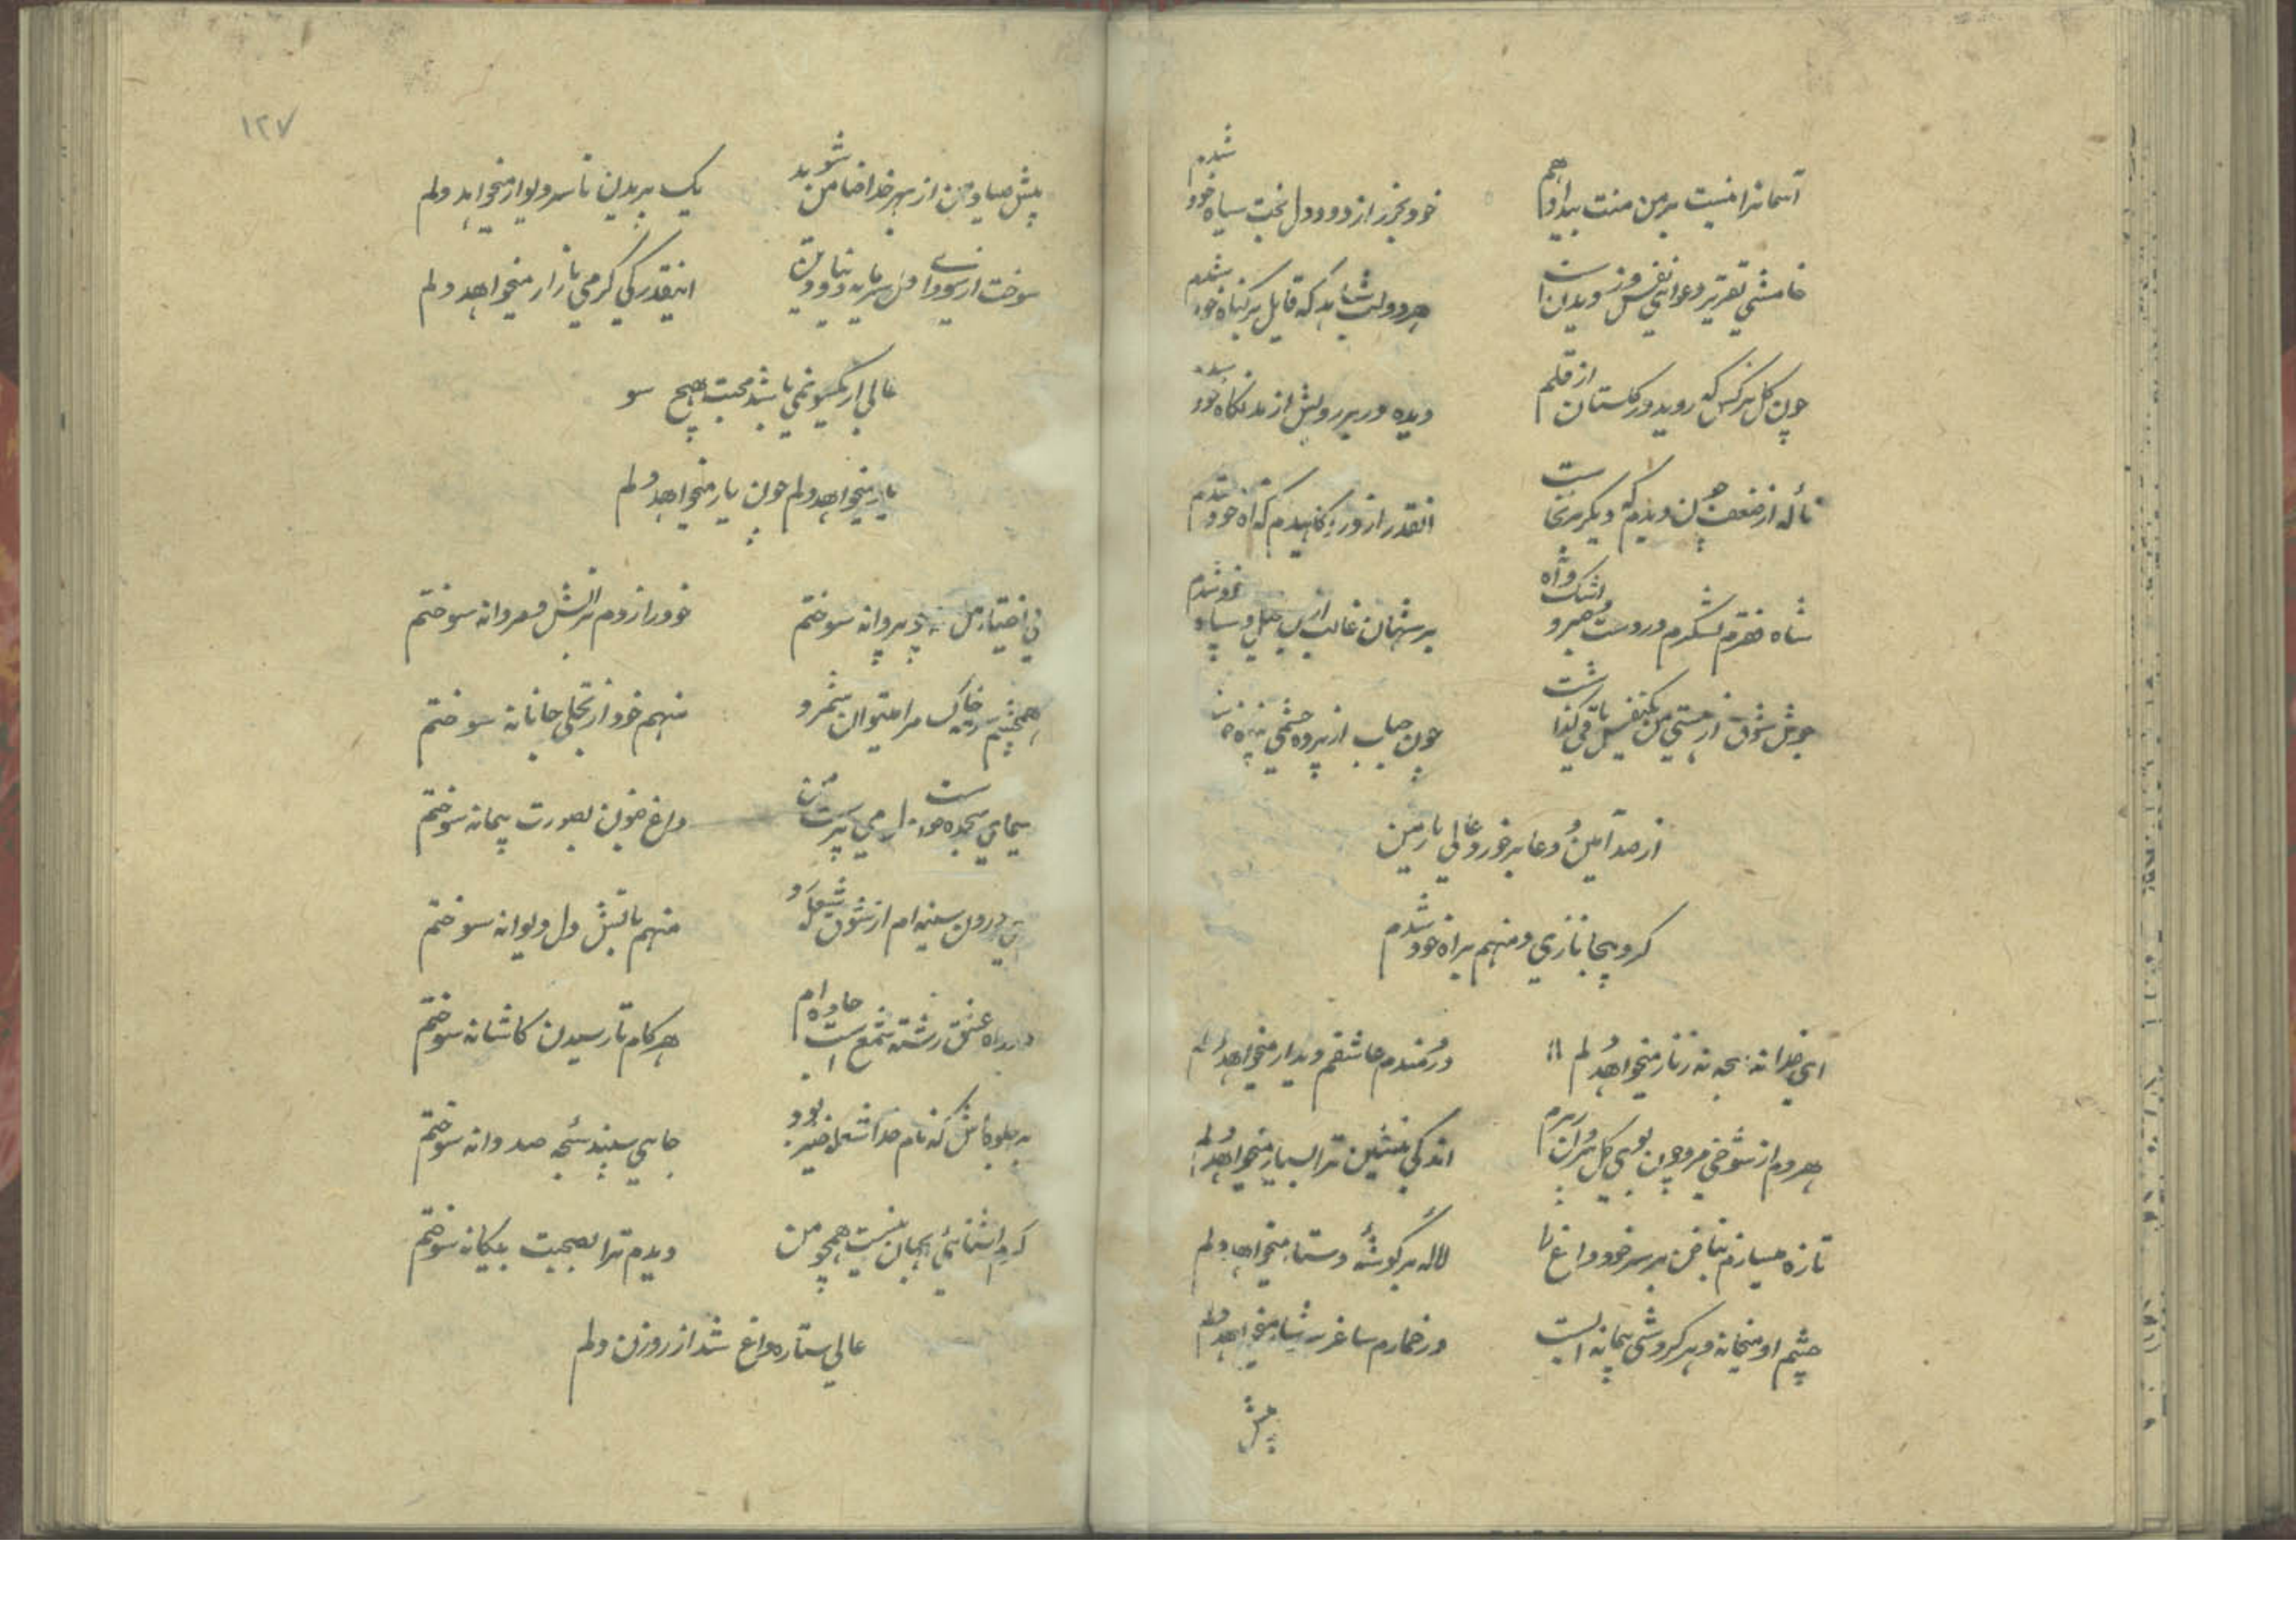 آسمانرا نیست بر من منت بیداد هم
خود بخود از دود دل بخت سیاه خود شدم
خامشی تقریر دعوای نفس دزدیدن است
هر دو لب شاهد که قایل بر گناه خود شدم
چون گل نرگس که روید در گلستان از قلم
دیده در بر رویش از مد نگاه خود شدم
ناله از ضعف دیدم که دیگر برنخاست
انقدر از درد کاهیدم که آه خود شدم
شاه فقرم لشکرم درد ست و صبر و اشک و آه
بر شهان غالب از بی خیل و سپاه خود شدم
جوش شوق از هستی من یکنفس باقی گذاشت
چون حباب از پرده چشمی
از صد آمین دعا برخورد عالی یار من
کرد بیجا نازی و منهم براه خود شدم
ای خدا نه سبحه نه زنار میخواهد دلم
دردمندم عاشقم دیدار میخواهد دلم
هر دم از شوخی مرو چون بوی گل از برم
اندکی بنشین ترا بسیار میخواهد دلم
تازه میسازم بناخن بر سر خود داغ را
لاله بر گوشهٔ دستار میخواهد دلم
چشم او میخانه و هر گردشی پیمانه ایست
در خمارم ساغر سرشار میخواهد دلم
پیش
۱۲۷
پیش صیاد من از بهر خدا ضامن شوید
یک پریدن تا سر دیوار میخواهد دلم
سوخت از سودای دل سرمایه دود من
اینقدر کی گرمی بازار میخواهد دلم
عالی از یکسو نمی باشد محبت هیچ سو
یار میخواهد دلم چون یار میخواهد دلم
بی اختیار مثل پروانه سوختم
خود را زدم بر آتش و مردانه سوختم
همچشم سرمه خاک مرا میتوان شمرد
منهم خود از تجلی جانانه سوختم
سیمای سجده می پرست من
داغ جنون بصورت پیمانه سوختم
درون سینه ام از شوق شعله زد
منهم باتش دل دیوانه سوختم
در راه عشق رشته شمع است جاده ام
هر گام تا رسیدن کاشانه سوختم
بر جلوه اش که نام خدا شعله خیز بود
جای سپند سبحه صد دانه سوختم
گرم آشنائی بجهان نیست همچو من
دیدم ترا بصحبت بیگانه سوختم
عالی ستاره داغ شد از روزن دلم